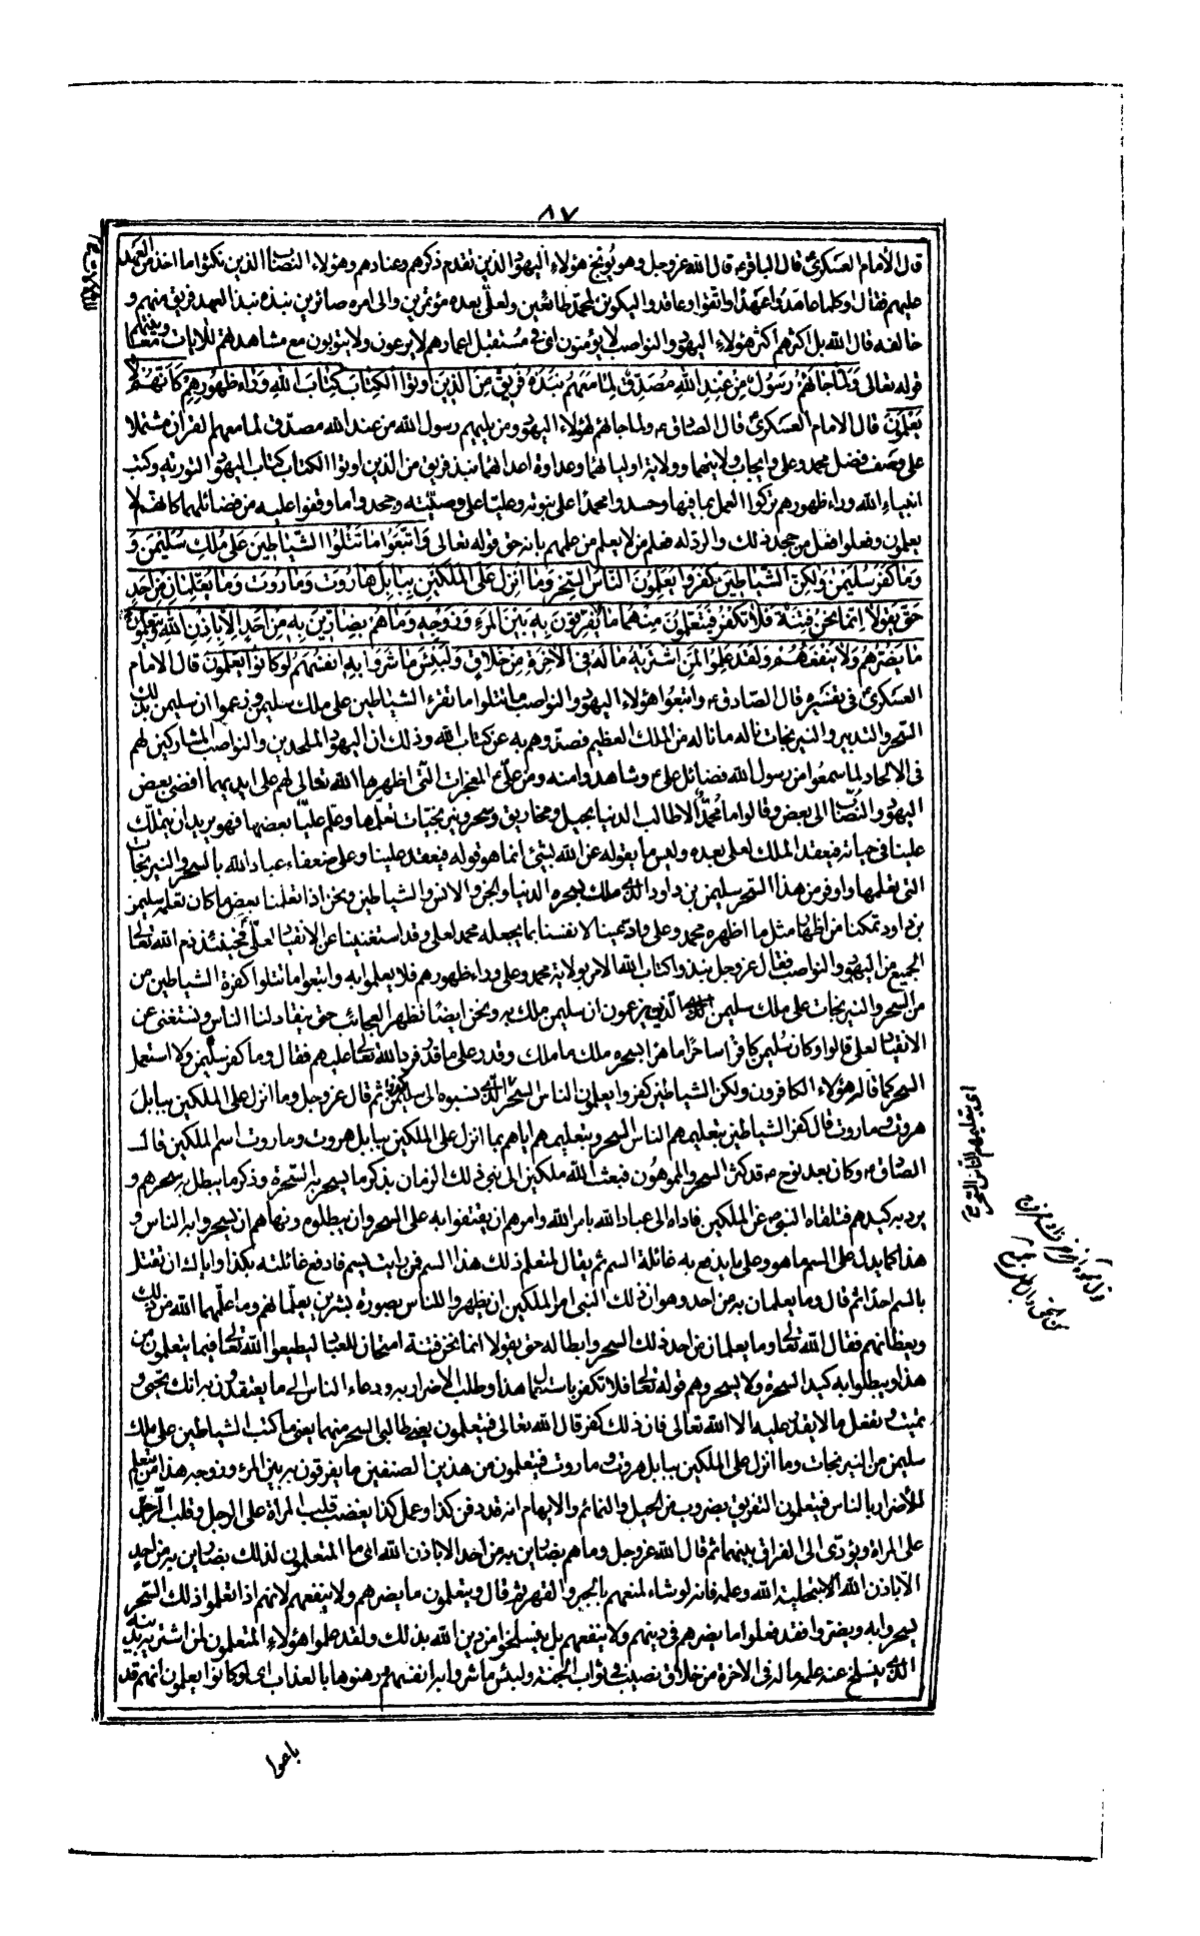 ٨٧
قال الأمام العسكرى قال الباقر ع قال الله عز وجل وهو يوبخ هؤلاء اليهود الذين تقدم ذكرهم وعنادهم وهؤلاء النصاب الذين نكثوا ما اخذ من العهد
عليهم فقال او كلما عاهدوا عهدا واثقوا وعاقدوا ليكونن لمحمد طائعين ولعلى بعده مؤتمرين والى امره صائرين نبذه نبذ العهد فريق منهم و
خالفه قال الله بل اكثرهم اكثر هؤلاء اليهود والنواصب لا يؤمنون اى فى مستقبل اعمارهم لا يرعوون ولا يتوبون مع مشاهدتهم للآيات ومعاينتهم
قوله تعالى ولما جاءهم رسول من عند الله مصدق لما معهم نبذ فريق من الذين اوتوا الكتاب كتاب الله وراء ظهورهم كانهم لا
يعلمون قال الامام العسكرى قال الصادق ع ولما جاءهم هؤلاء اليهود ومن يليهم رسول الله من عند الله مصدق لما معهم القران مشتملا
على وصف فضل محمد وعلى وايجاب ولايتهما وولاية اوليائهما وعداوة اعدائهما نبذ فريق من الذين اوتوا الكتاب كتاب اليهود التورية وكتب
انبياء الله وراء ظهورهم تركوا العمل بما فيها وحسدوا محمدا على نبوته وعليا على وصيته وجحدوا ما وقفوا عليه من فضائلهما كانهم لا
يعلمون وفعلوا فعل من جحد ذلك والرد له فعل من لا يعلم من علمهم بانه حق قوله تعالى واتبعوا ما تتلوا الشياطين على ملك سليمن و
وما كفر سليمن ولكن الشياطين كفروا يعلمون الناس السحر وما انزل على الملكين ببابل هاروت وماروت وما يعلمان من احد
حتى يقولا انما نحن فتنة فلا تكفر فيتعلمون منهما ما يفرقون به بين المرء وزوجه وما هم بضارين به من احد الا باذن الله ويتعلمون
ما يضرهم ولا ينفعهم ولقد علموا لمن اشتريه ما له فى الاخرة من خلاق ولبئس ما شروا به انفسهم لو كانوا يعلمون قال الامام
العسكرى فى تفسيره قال الصادق ع واتبعوا هؤلاء اليهود والنواصب ما تتلوا ما تقرء الشياطين على ملك سليمن وزعموا ان سليمن بذلك
السحر والتدبير والنيرنجات ناله ما ناله من الملك العظيم فصدوهم به عن كتاب الله وذلك ان اليهود الملحدين والنواصب المشاركين لهم
فى الالحاد لما سمعوا من رسول الله فضائل على ع وشاهدوا منه ومن على ع المعجزات التى اظهرها الله تعالى لهم على ايديهما افضى بعض
اليهود والنصاب الى بعض وقالوا ما محمد الا طالب الدنيا بحيل ومخاريق وسحر ونيرنجيات تعلمها وعلم عليا بعضها فهو يريد ان يتملك
علينا فى حياته فيعقد الملك لعلى بعده وليس ما يقوله عن الله بشئ انما هو قوله فيعقد علينا وعلى ضعفاء عباد الله بالسحر والنيرنجات
التى تعلمها واوفر من هذا السحر سليمن بن داود الذى ملك بسحره الدنيا والجن والانس والشياطين ونحن اذا تعلمنا بعض ما كان تعلمه سليمن
بن داود تمكنا من اظهار مثل ما اظهره محمد وعلى وادعينا لانفسنا بما يجعله محمد لعلى وقد استغنينا عن الانقياد لعلى فحينئذ ذم الله تعالى
الجميع من اليهود والنواصب فقال عز وجل نبذوا كتاب الله الامر بولاية محمد وعلى وراء ظهورهم فلا يعملوا به واتبعوا ما تتلوا كفرة الشياطين من
من السحر والنيرنجات على ملك سليمن الذين يزعمون ان سليمن ملك به ونحن ايضا نظهر العجائب حتى ينقاد لنا الناس ونستغنى عن
الانقياد لعلى قالوا وكان سليمن كافرا ساحرا ماهرا بسحره ملك ما ملك وقدر على ما قدر فرد الله تعالى عليهم فقال وما كفر سليمن ولا استعمل
السحر كما قاله هؤلاء الكافرون ولكن الشياطين كفروا يعلمون الناس السحر الذى نسبوه الى سليمن كفروا ثم قال عز وجل وما انزل على الملكين ببابل
هروت وماروت قال كفر الشياطين بتعليمهم الناس السحر وبتعليمهم اياهم بما انزل على الملكين ببابل هروت وماروت اسم الملكين قال
الصادق ع وكان بعد نوح ع قد كثر السحر والمموهون فبعث الله ملكين الى نبى ذلك الزمان بذكر ما يسحر به السحرة وذكر ما يبطل به سحرهم و
يرد به كيدهم فتلقاه النبى ص عن الملكين فاداه الى عباد الله بامر الله وامرهم ان يقتفوا به على السحر وان يبطلوه ونهاهم ان يسحروا به الناس و
هذا كما يدل على السم ما هو وعلى ما يدفع به غائلة السم ثم يقال لمتعلم ذلك هذا السم فمن رايت يسم فادفع غائلته بكذا واياك ان تقتل
بالسم احدا ثم قال وما يعلمان به من احد وهو ان ذلك النبى امر الملكين ان يظهرا للناس بصورة بشرين يعلمانهم وما علمهما الله من ذلك
ويعظانهم فقال الله تعالى وما يعلمان من احد ذلك السحر وابطاله حتى يقولا انما نحن فتنة امتحان للعباد ليطيعوا الله تعالى فيما يتعلمون من
هذا ويبطلوا به كيد السحرة ولا يسحروهم قوله تعالى فلا تكفر باستعمال هذا وطلب الاضرار به ودعاء الناس الى ما يعتقدون به انك تحيى و
تميت وتفعل ما لا يقدر عليه الا الله تعالى فان ذلك كفر قال الله تعالى فيتعلمون يعنى طالبى السحر منهما يعنى ما كتب الشياطين على ملك
سليمن من النيرنجات وما انزل على الملكين ببابل هروت وماروت فيتعلمون من هذين الصنفين ما يفرقون به بين المرء وزوجه هذا من يتعلم
للاضرار بالناس فيتعلمون التفريق بضروب من الحيل والتمائم والايهام انه قد دفن كذا وعمل كذا يغضب قلب المراة على الرجل وقلب الرجل
على المراة ويؤدى الى الفراق بينهما ثم قال الله عز وجل وما هم بضارين به من احد الا باذن الله اى ما المتعلمون لذلك بضارين به من احد
الا باذن الله الا بتخلية الله وعلمه فانه لو شاء لمنعهم بالجبر والقهر ثم قال ويتعلمون ما يضرهم ولا ينفعهم لانهم اذا تعلموا ذلك السحر
يسحروا به ويضروا فقد فعلوا ما يضرهم فى دينهم ولا ينفعهم بل ينسلخوا من دين الله بذلك ولقد علموا هؤلاء المتعلمون لمن اشتريه بدينه
الذى ينسلخ عنه علمه ما له فى الاخرة من خلاق نصيب فى ثواب الجنة ولبئس ما شروا به انفسهم ورهنوها بالعذاب اى لو كانوا يعلمون انهم قد
اى بتعليمهم الناس السحر ع
باعوا